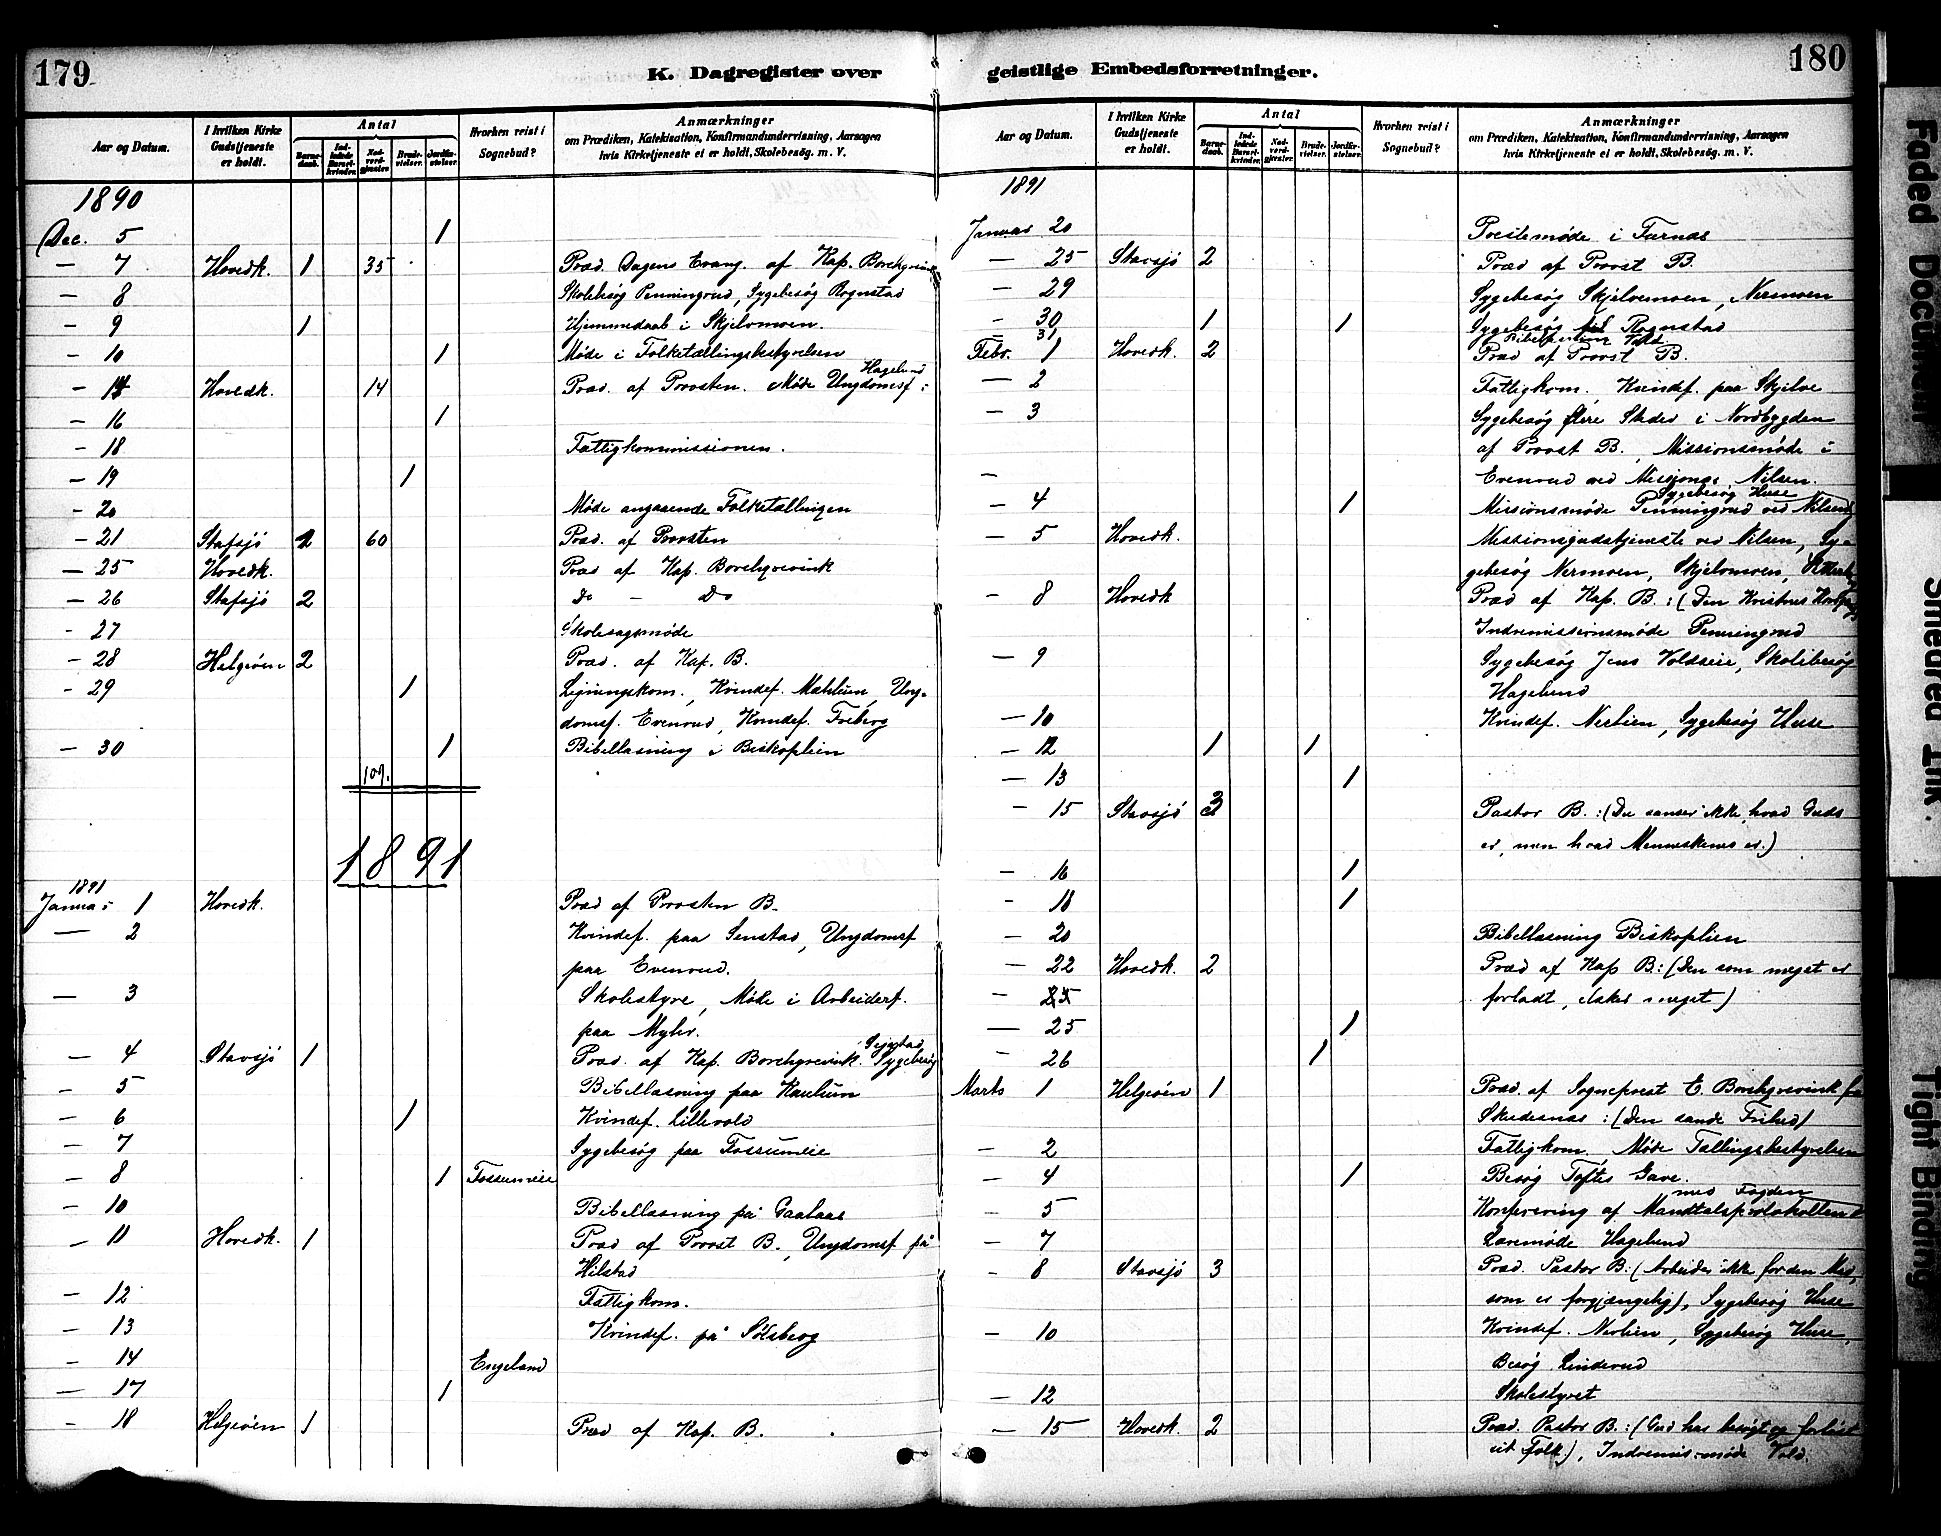 179
K. Dagregister over
Aar og Datum. I hvilken Kirke Gudstjeneste er holdt. Antal Barnedaab. Indledede Barselkvinder. Nadverdgjester. Brudevielser. Jordfæstelser. Hvorhen reist i Sognebud? Anmærkninger om Prædiken, Katekisation, Konfirmandundervisning, Aarsagen hvis Kirketjeneste ei er holdt, Skolebesøg. m. V.
1890
Dec. 5 1
— 7 Hovedk. 1 35 Præd. Dagens Evang. af Kap. Borchgrevink
— 8 Skolebesøg Penningrud, Sygebesøg Rognstad
— 9 1 Hjemmedaab i Skjelvmoen.
— 10 1 Møde i Folketællingsbestyrelsen
— 14 Hovedk. 14 Præd. af Provsten. Møde Ungdomsf: Hagelund
— 16 1
— 18 Fattigkommissionen.
— 19 1
— 20 Møde angaaende Folketællingen
— 21 Stafsjø 2 60 Præd. af Provsten
— 25 Hovedk. Præd af Kap. Borchgrevink
— 26 Stafsjø 2 Do — Do
— 27 Skolesagsmøde
— 28 Helgøen 2 Præd. af Kap. B.
— 29 1 Ligningskom., Kvindef. Mæhlum, Ung-
domsf. Evenrud, Kvindef. Freberg
— 30 1 Bibellæsning i Biskoplien
109.
1891
1891
Januar 1 Hovedk. Præd af Provsten B.
— 2 Kvindef. paa Senstad, Ungdomsf
paa Evenrud.
— 3 Skolestyre, Møde i Arbeiderf.
paa Myhr.
— 4 Stavsjø 1 Præd. af Kap. Borchgrevink. Sygebesøg
— 5 Bibellæsning paa
— 6 1 Kvindef. Lillevold
— 7 Sygebesøg paa Fossumeie
— 8 1 Fossumeie
— 10 Bibellæsning på Gaalaas
— 11 Hovedk. 1 Præd af Provst B., Ungdomsf på
Hilstad
— 12 Fattigkom.
— 13 Kvindef. på Sølsberg
— 14 Engeland
— 17 1
— 18 Helgøen 1 Præd af Kap. B.
180
geistlige Embedsforretninger.
Aar og Datum. I hvilken Kirke Gudstjeneste er holdt. Antal Barnedaab. Indledede Barselkvinder. Nadverdgjester. Brudevielser. Jordfæstelser. Hvorhen reist i Sognebud? Anmærkninger om Prædiken, Katekisation, Konfirmandundervisning, Aarsagen hvis Kirketjeneste ei er holdt, Skolebesøg. m. V.
1891
Januar 20 Præstemøde i Furnæs
— 25 Stavsjø 2 Præd af Provst B.
— 29 Sygebesøg Skjelvmoen, Nermoen
— 30 1 1 Sygebesøg Rognstad
31 Vold
Febr. 1 Hovedk. 2 Præd af Provst B.
— 2 Fattigkom. Kvindef. paa Skjelve
— 3 Sygebesøg flere Steder i Nordbygden
af Provst B., Missionsmøde i
— Evenrud ved Missions. Nilsen.
Sygebesøg Huse
— 4 1 Missionsmøde Penningrud ved Nilsen
— 5 Hovedk. Missionsgudstjeneste ved Nilsen, Sy-
gebesøg Nermoen, Skjelvmoen,
— 8 Hovedk Præd af Kap. B.: (Den Kristnes
Indremissionsmøde Penningrud
— 9 Sygebesøg Jens Voldseie, Skolebesøg
Hagelund
— 10 Kvindef. Nerlien, Sygebesøg Huse
— 12 1 1
— 13 1
— 15 Stavsjø 3 Pastor B.: (Du sanser ikke, hvad Guds
er, men hvad Menneskenes er.)
— 16 1
— 18 1
— 20 Bibellæsning Biskoplien
— 22 Hovedk. 2 Præd af Kap B: (Den som meget er
— forladt, elsker meget)
— 25 1
— 26 1
Marts 1 Helgøen 1 Præd. af Sogneprest E. Borchgrevink fra
Skudesnæs: (Den sande Frihed)
— 2 Fattigkom. Møde Tællingsbestyrelsen
— 4 1 Besøg Toftes Gave.
med Fogden
— 5 Konferering af Mandtalsprotokollen
— 7 Læremøde Hagelund
— 8 Stavsjø 3 Præd. Pastor B: (Arbeider ikke for den Mad,
som er forgjængelig), Sygebesøg Huse
— 10 Kvindef. Nerlien, Sygebesøg Huse,
Besøg Linderud
— 12 Skolestyret
— 15 Hovedk. 2 Præd. Pastor B.: (Gud har besøgt og forløst
sit Folk), Indremis.møde Vold.
Faded Document
Smeared Ink.
Tight Binding